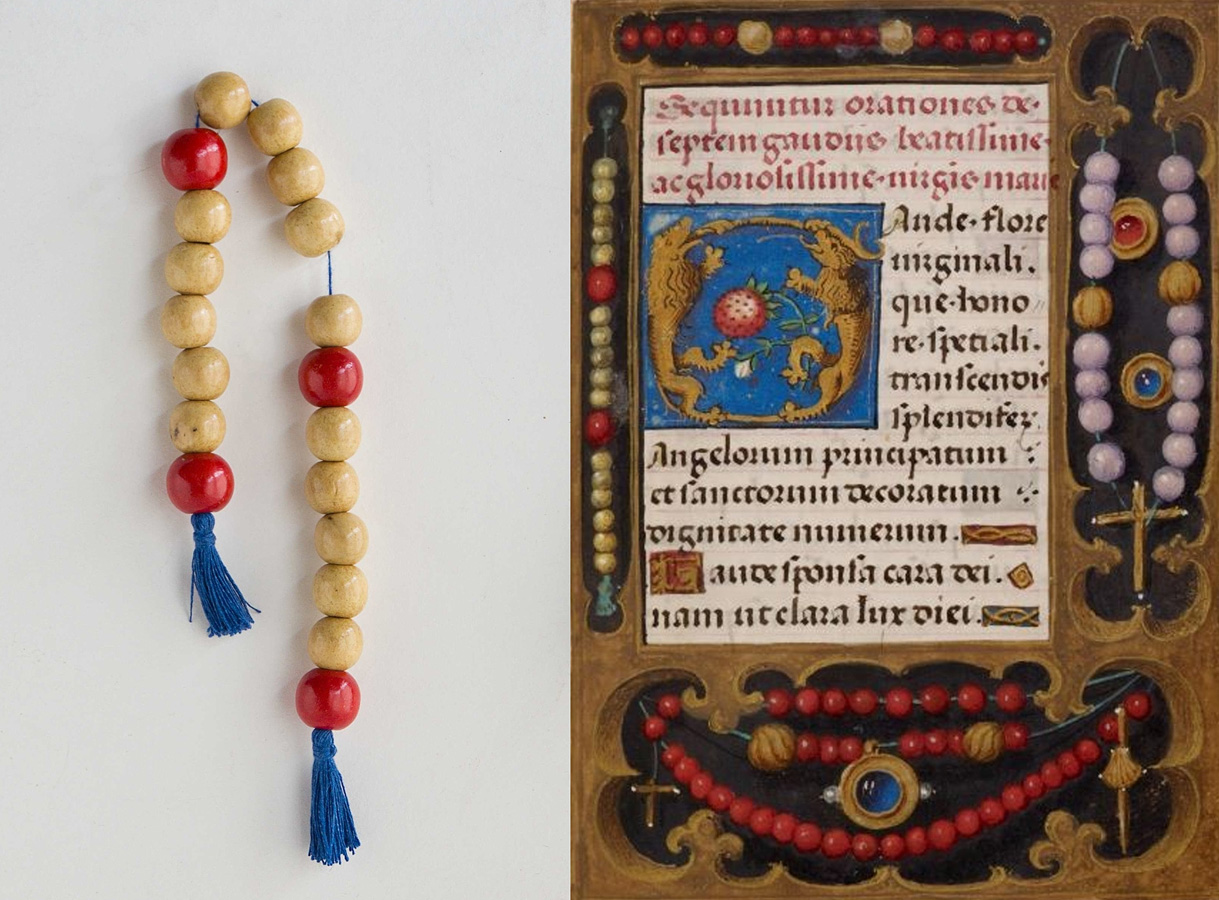 Sequuntur orationes de·
septem gaudiis beatissime·
ac gloriosissime·uirgis·marie
Aude·flore
uirginali.
que·hono
re·speciali.
transcendis
splendifer
Angelorum principatum :
et sanctorum decoratum
dignitate numerum.
Gaude sponsa cara dei.
nam ut clara lux diei.